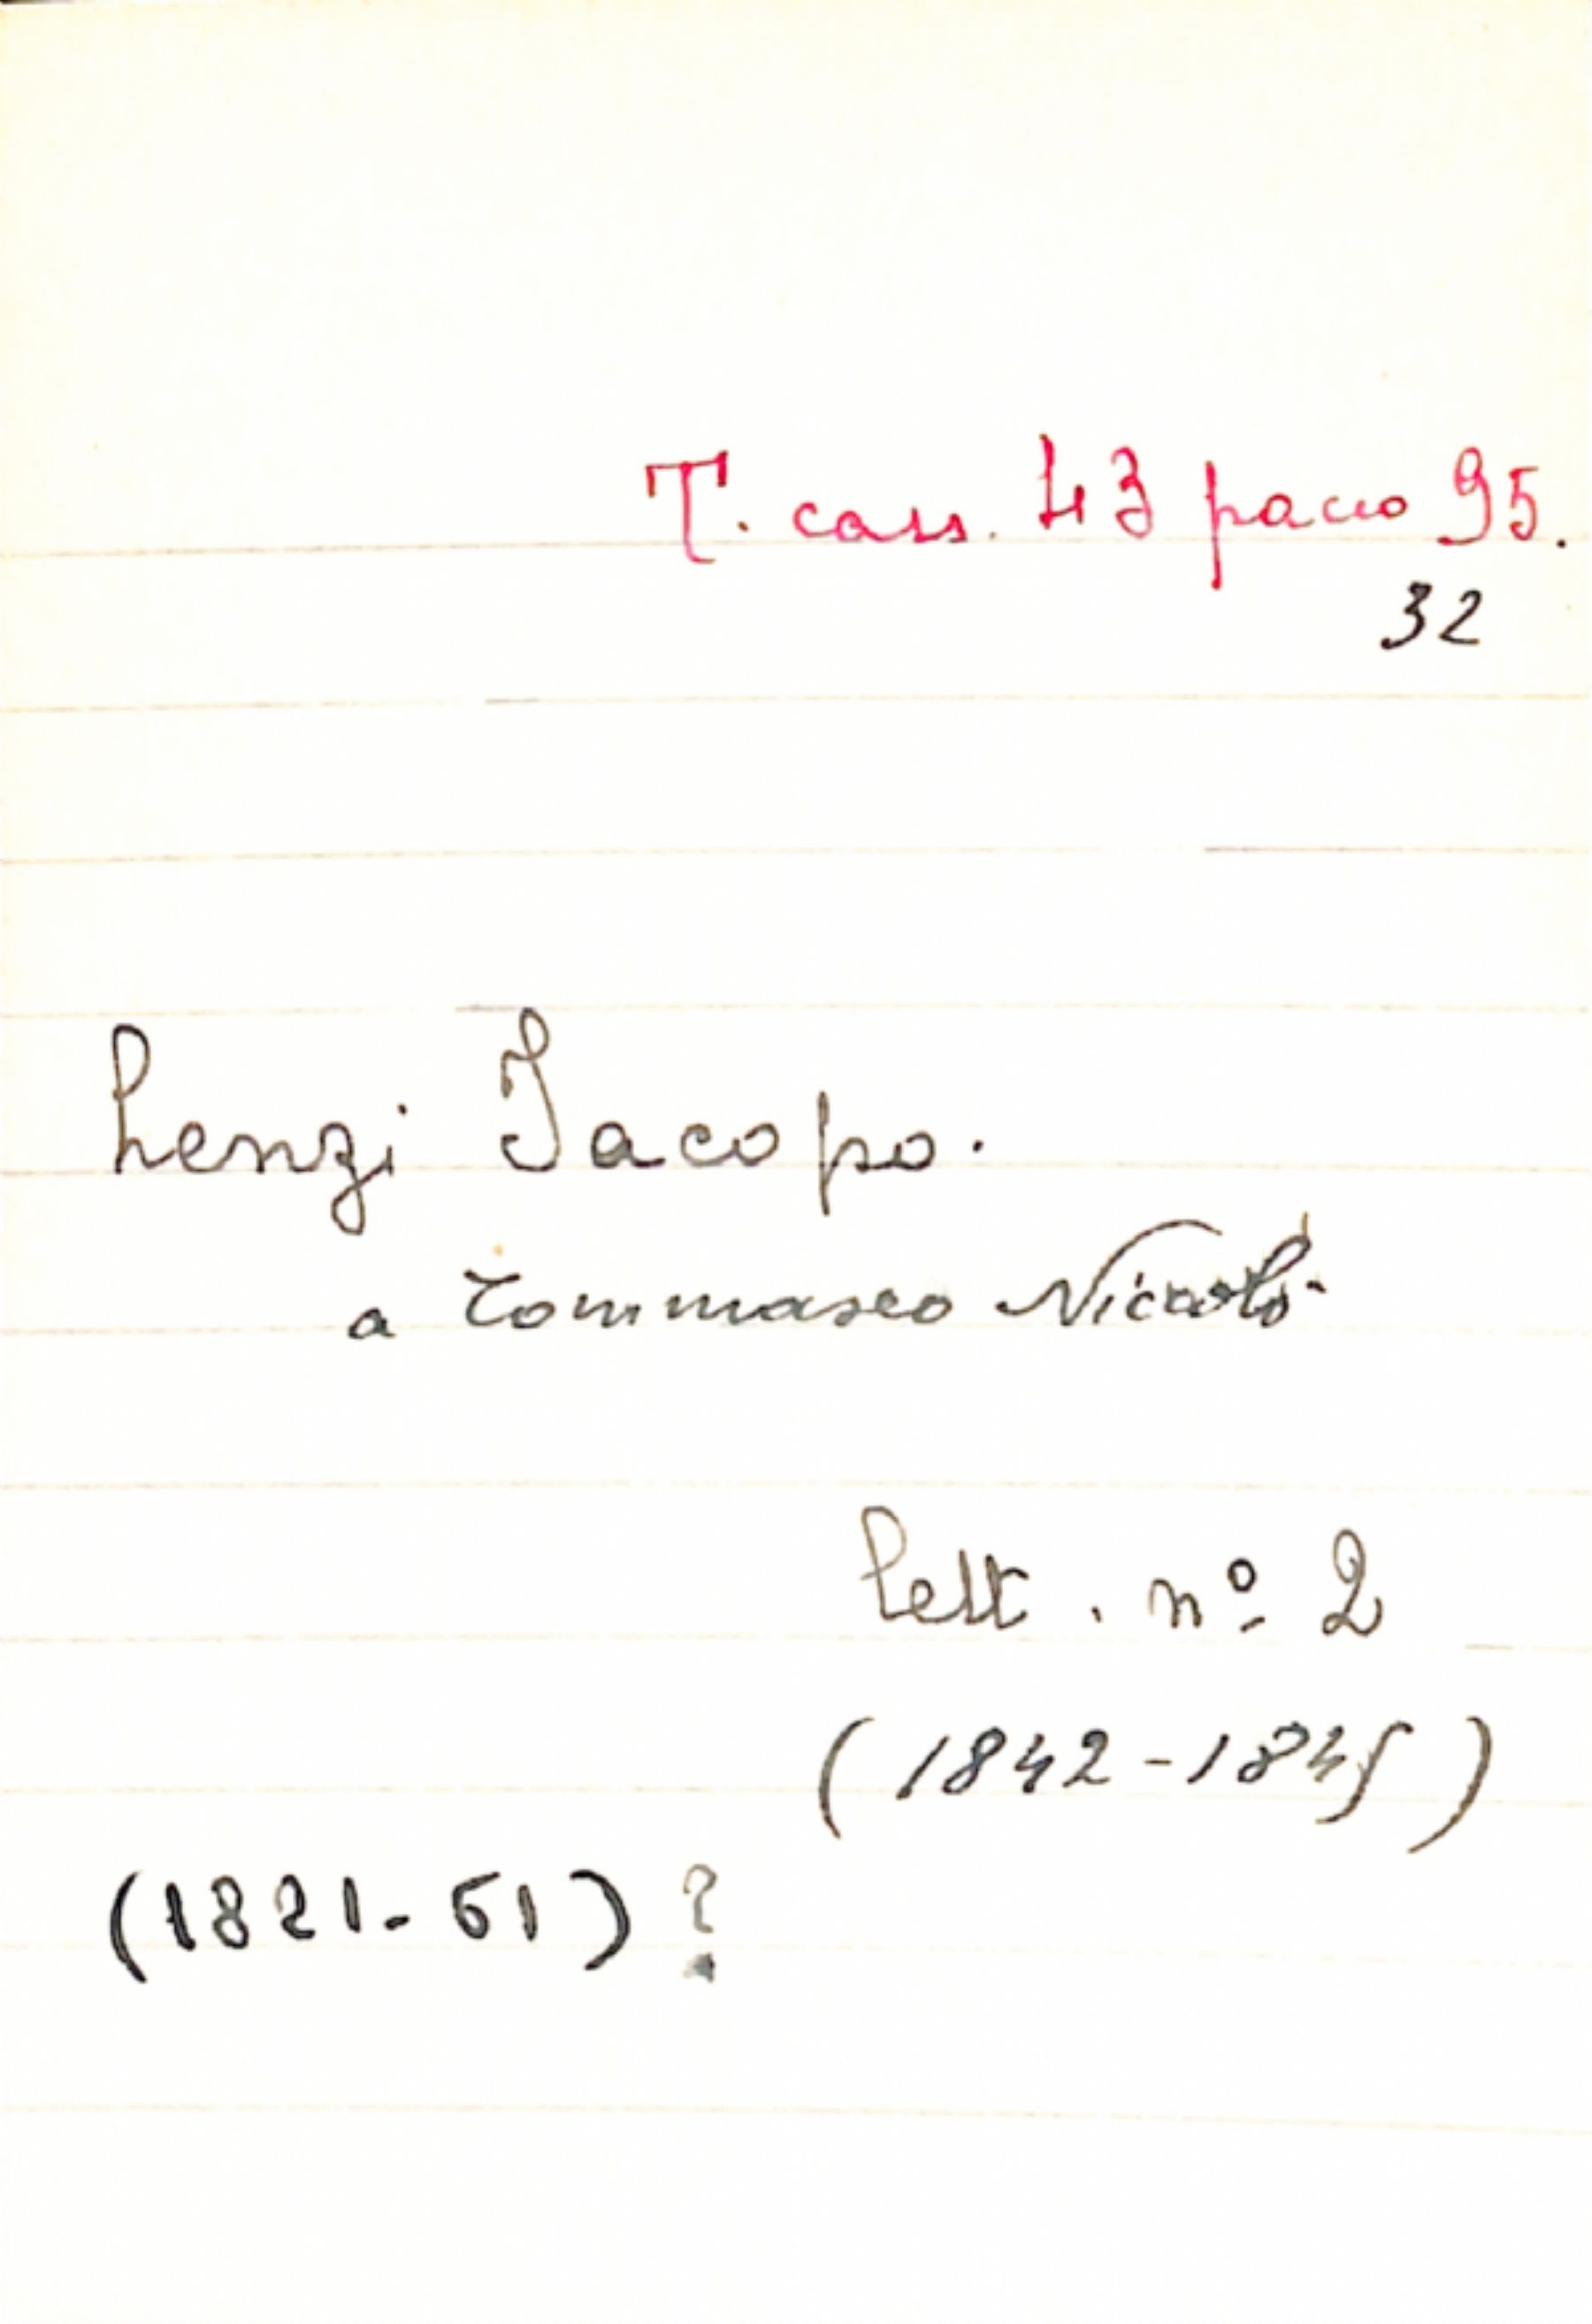 T. cass. 43 pacco 95.
32
Lenzi Jacopo.
a Tommaseo Nicolò.
Lett. nº 2
(1842-1845)
(1821-61)?